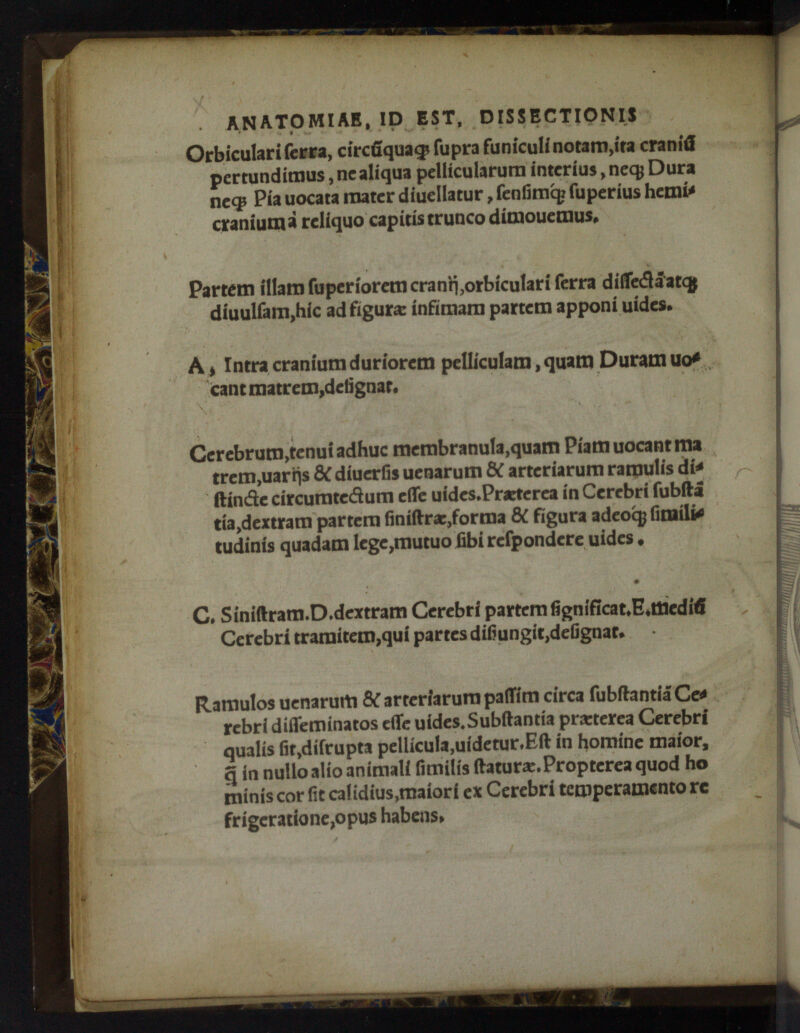 ANATOMIAE, ID EST, DISSECTIONIS
Orbiculari ſerra, circũquaqꝫ ſupra funiculi notam,ita craniũ
pertundimus, ne aliqua pellicularum interius, neqꝫ Dura
neqꝫ Pia uocata mater diuellatur, ſenſimqꝫ ſuperius hemi⸗
cranium à reliquo capitis trunco dimouemus.
Partem illam ſuperiorem cranij,orbiculari ſerra diſſectã atqꝫ
diuulſam,hic ad figuræ infimam partem apponi uides.
A, Intra cranium duriorem pelliculam, quam Duram uo⸗
cant matrem,deſignat.
Cerebrum,tenui adhuc membranula,quam Piam uocant ma
trem,uarijs & diuerſis uenarum & arteriarum ramulis di⸗
ſtincte circumtectum eſſe uides.Præterea in Cerebri ſubſtã
tia,dextram partem ſiniſtræ,forma & figura adeoqꝫ ſimili⸗
tudinis quadam lege,mutuo ſibi reſpondere uides.
C. Siniſtram.D.dextram Cerebri partem ſignificat.E.mediũ
Cerebri tramitem,qui partes diſiungit,deſignat.
Ramulos uenarum & arteriarum paſſim circa ſubſtantiã Ce⸗
rebri diſſeminatos eſſe uides.Subſtantia præterea Cerebri
qualis ſit,diſrupta pellicula,uidetur.Eſt in homine maior,
q̃ in nullo alio animali ſimilis ſtaturæ.Propterea quod ho
minis cor ſit calidius,maiori ex Cerebri temperamento re
frigeratione,opus habens.